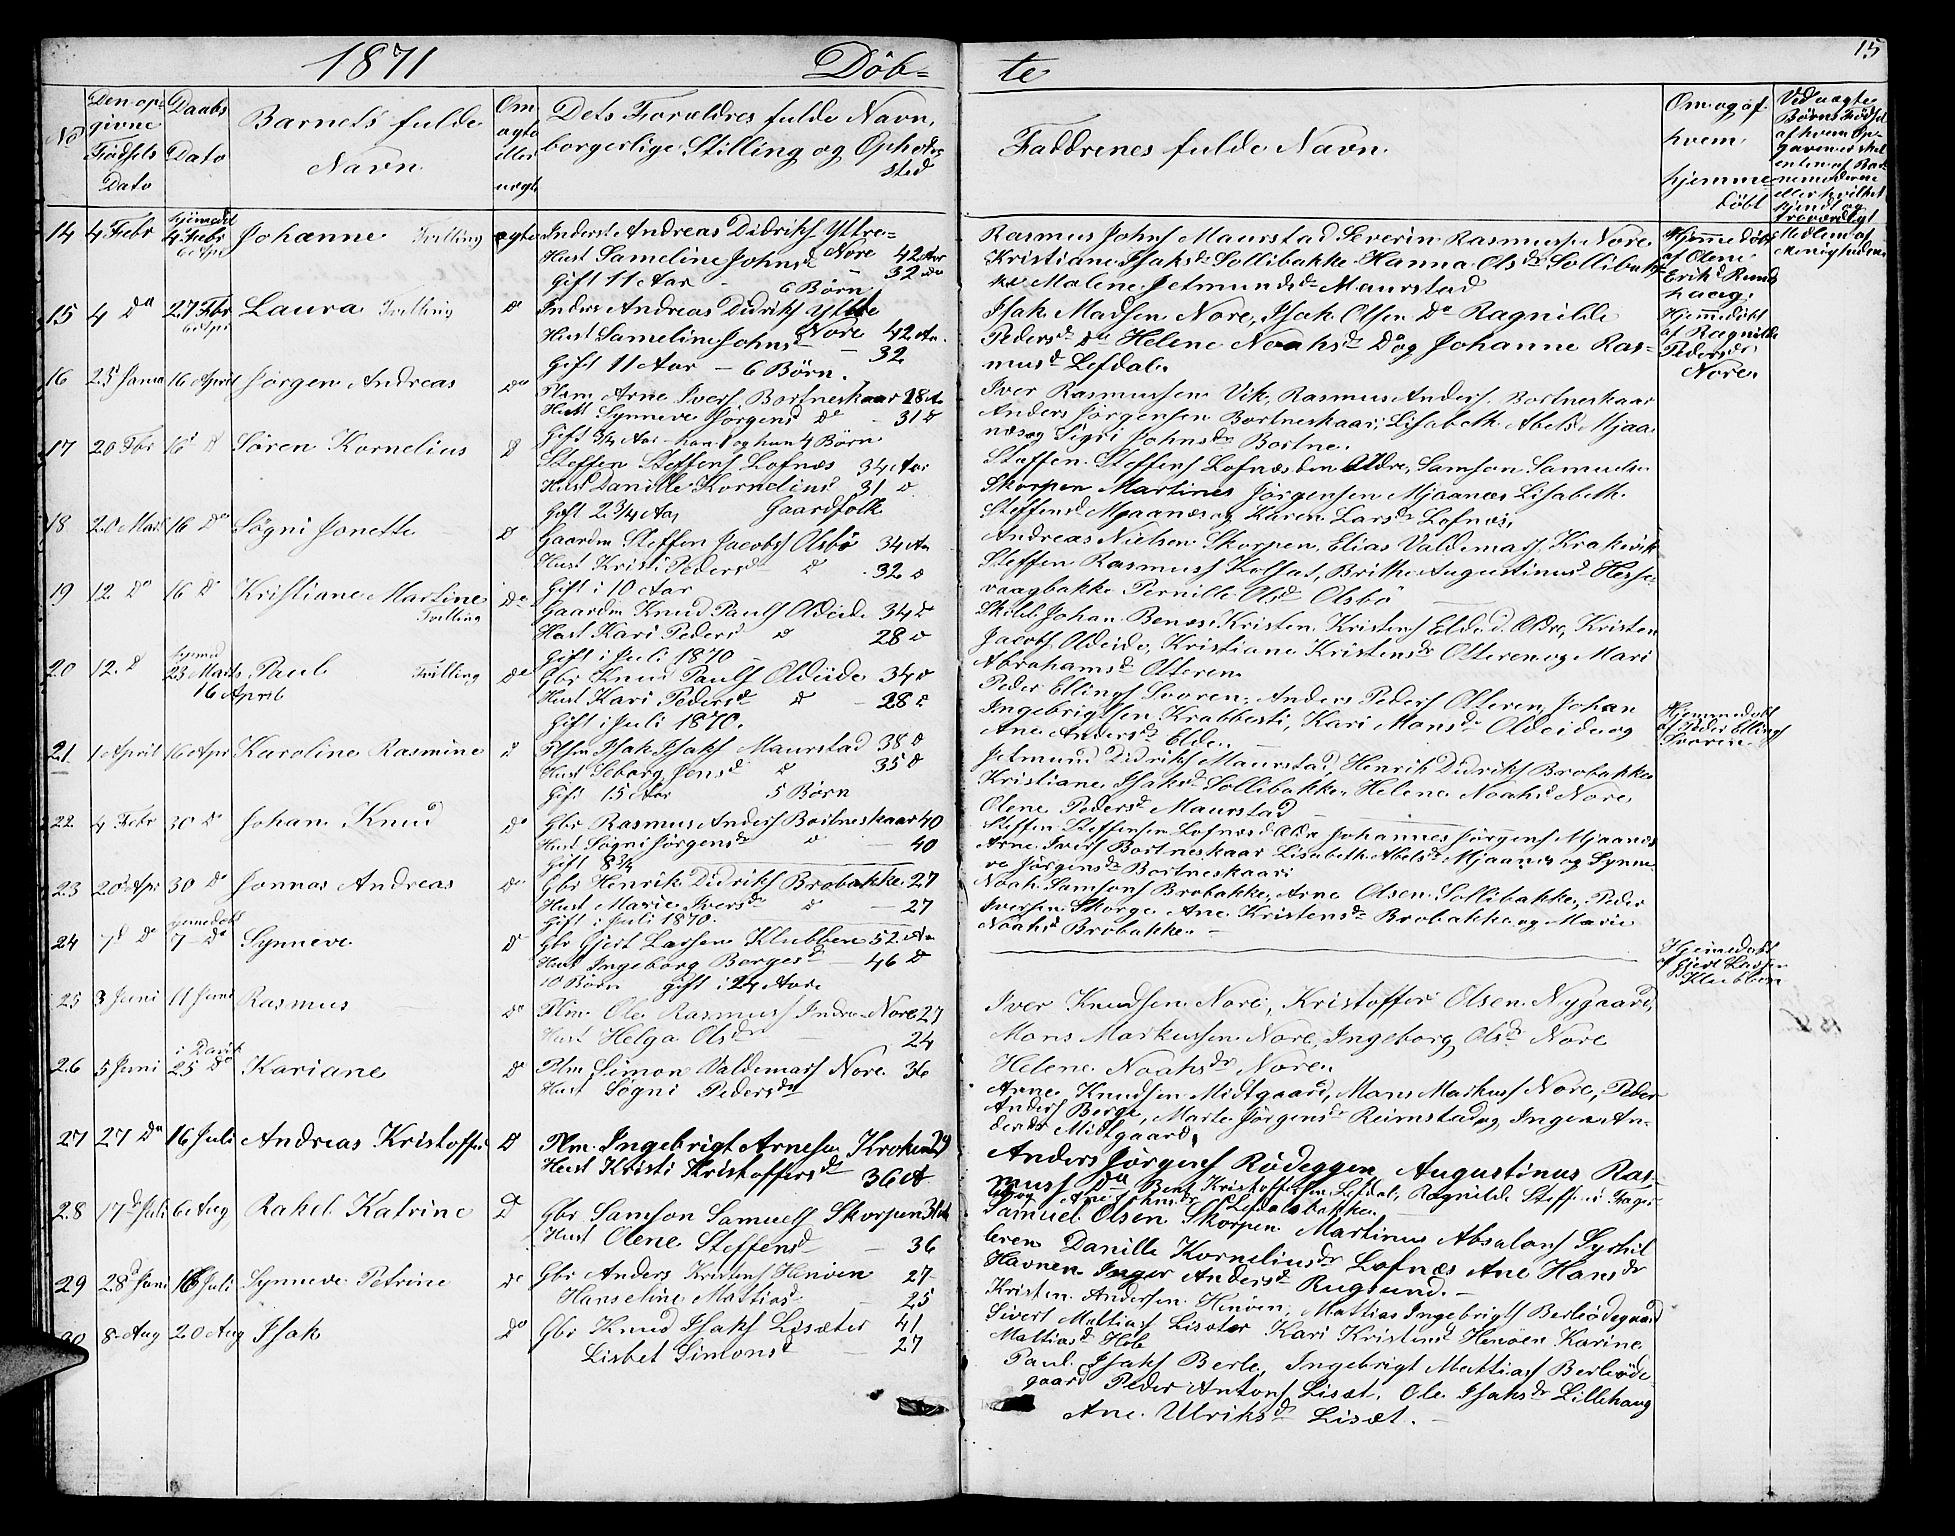 1871 Döb= te 15
No
Den op-
givne
Födsels
Dato
Daabs
Dato
Barnets fulde
Navn.
Om
ægte
eller
uægte
Dets Forældres fulde Navn,
borgerlige Stilling og Opholds
sted
Faddrenes fulde Navn.
Om og af
hvem
hjemme-
döbt
Ved uægte
Börns Födsel
af hvem Op-
gaven er
enten af Bar-
nemoderen
eller hvilket
kjendt og
troværdigt
Medlem af
Menigheden
14 4 Febr hjemmedöbt 4 Febr Johanne Tvilling ægte Inderst Andreas Didriks Yttre=
Hust Sameline Johnsd Nore 42 Aar
Gift 11 Aar - 6 Börn 32 do
Rasmus Johns Maurstad Severin Rasmuss. Nore
Kristiane Isaksdr Sollibakke Hanna Olsdr Sollibak-
ke Malene Jetmundsdr Maurstad
Hjemmedöbt
af Olene
Eriksd Rund
haag.
15 4 Do 27 Fbr Laura Tvilling do Inders Andreas Didriks Yttre
Nore 42 Aar.
Hust Sameline Johnsd - 32
Gift 11 Aar - 6 Börn.
Isak Madsen Nore, Isak Olsen Do Ragnilde
Pedersd do Helene Noahsdr Do og Johanne Ras=
musd Lefdal.
Hjemmedöbt
af Ragnilde
Pedersdr
Nore.
16 25 Janua 16 April Jörgen Andreas do Plsm Arne Ivers Bortneskaar 28 A
Hust Synneve Jörgensd do - 31 do
Gift 3/4 Aar - han 1 og hun 4 Börn
Iver Rasmussen Vik, Rasmus Anders. Bortneskaar
Anders Jörgensen Bortneskaar, Lisabeth Abelsd Mjaa
næs og Sigri Johnsdr Bortne.
17 20 Fbr 16 d Sören Kornelius do Steffen Steffens Lofnæs 34 Aar
Hust Danille Kornelius 31 do
Gift 2 3/4 Aar Gaardfolk
Steffen Steffens Lofnæs den Ældre, Samson Samuels
Skorpen Martines Jörgensen Mjaanæs Lisabeth
Steffensd Mjaanæs og Karen Larsdr Lofnæs,
18 20 Mars 16 Do Sögni Jonette do Gaardm Steffen Jacobs Olsbö 34 Aar
Hust Kristi Pedersd do 32 do
Gift i 10 Aar
Andreas Nielsen Skorpen, Elias Valdemars, Krakevik
Steffen Rasmuss Kolset, Brithe Augustinusd Hesse-
vaagbakke Pernille Olsd Olsbö
19 12 Do 16 D Kristiane Martine
Tvilling Do Gaardm Knud Pauls Oldeide 34 do
Hust Kari Pedersd do 28 do
Gift i Juli 1870
Johan Benes, Kristen Kristens Elde d. Ældre, Kristen
Jacobs Oldeide, Kristiane Kristensdr Otteren og Mari
Abrahamsdr Otteren
20 12. d 23 Marts Paul Tvilling do
16 April
Gbr Knud Pauls Oldeide 34 do
Hust Kari Pedersd do 28 do
Gift i Juli 1870.
Peder Ellings Svoren, Anders Peders Otteren, Johan
Ingebrigtsen Krabbesti, Kari Monsdr Oldeide og
Ane Andersdr Elde.
Hjemmedöbt
af Peder Ellings
Svoren
21 1 April 16 Apr Karoline Rasmine d Plsm Isak Isaks Maurstad 38 do
Hust Seborg Jensd do 35 do
Gift 15 Aar 5 Börn
Jetmund Didriks Maurstad, Henrik Didriks Brobakke
Kristiane Isaksd Sollibakke, Helene Noahsd Nore
Olene Pedersdr Maurstad
22 4 Febr 30 Do Johan Knud do Gbr Rasmus Anders Bortneskaar 40
Hust Sögni Jörgensdr do 40
Gift 8 3/4
Steffen Steffensen Lofnæs d Ældre Johannes Jörgens Mjaanæs
Arne Ivers Bortneskaar Lisabeth Abelsdr Mjaanæs og Synne-
ve Jörgensdr Bortneskaar
23 20 Apr 30 Do Jonnas Andreas do Gbr Henrik Didriks Brobakke 27
Hust Marie Iversdr do - 27
Gift i Juli 1870.
Noah Samsons Brobakke, Arne Olsen Sollibakke, Peder
Iversen Skorge Ane Kristensdr Brobakke og Marie
Noahsd Brobakke. -
24 7d Do hjemmedöbt 7 - Do Synneve do Gbr Gjert Larsen Klubben 52 Aar
Hust Ingeborg Borgesd - 46 do
10 Börn gift i 24 Aar.
Hjemmedöbt
af Gjert Larsen
Klubben
25 3 Juni 11 Juni Rasmus do Plm. Ole Rasmus Indre-Nore 27
Hust Helga Olsdr - 24
Iver Knudsen Nore, Kristoffer Olsen Nygaard,
Mons Markussen Nore, Ingeborg Olsdr Nore
Helene Noahsdr Nore.
26 5 Juni i Davik 25 Do Kariane do Plm Simon Valdemars Nore 36
Hust Sögni Pedersdr
Arne Knudsen Midtgaard, Mons Markuss Nore, Peder
Anders Berge, Marte Jörgensdr Reimstad og Inger An-
dersdr Midtgaard,
27 27 Do 16 Juli Andreas Kristoffer D Plm. Ingebrigt Arnesen Kroken 29
Hust Kristi Kristoffersdr 36 A
Anders Jörgens Rödeggen Augustinus Ras-
mus Do Bent Kristoffersen Lefdal, Ragnilde
Lefdalsbakke.
28 17d Juli 6 Aug Rakel Katrine D Gbr Samson Samuels Skorpen 31
Hust Olene Steffensd - 36
Samuel Olsen Skorpen Martinus Absalons
leren Danille Korneliusdr Lofnæs Ane Hansdr
Havnen Inger Andersdr Rugsund. -
29 28d Juni 16 Juli Synneve Petrine do Gbr Anders Kristens Henöen 27
Hanseline Mattiasd - 25
Kristen Andersen Henöen, Mattias Ingebrigts Berleödegaard
Sivert Mattias Lisæter Kari Kristensd Henöen Karine
Mattiasd Hob
30 8 - Aug 20 Aug Isak Do Gbr Knud Isaks Lisæter 41
Lisbet Simonsd - 27
Paul Isaks Berle, Ingebrigt Mattias Berleöde-
gaard Peder Antons Lisæt. Ole Isaksdr Lillehaug
Ane Ulriksdr Lisæt. -